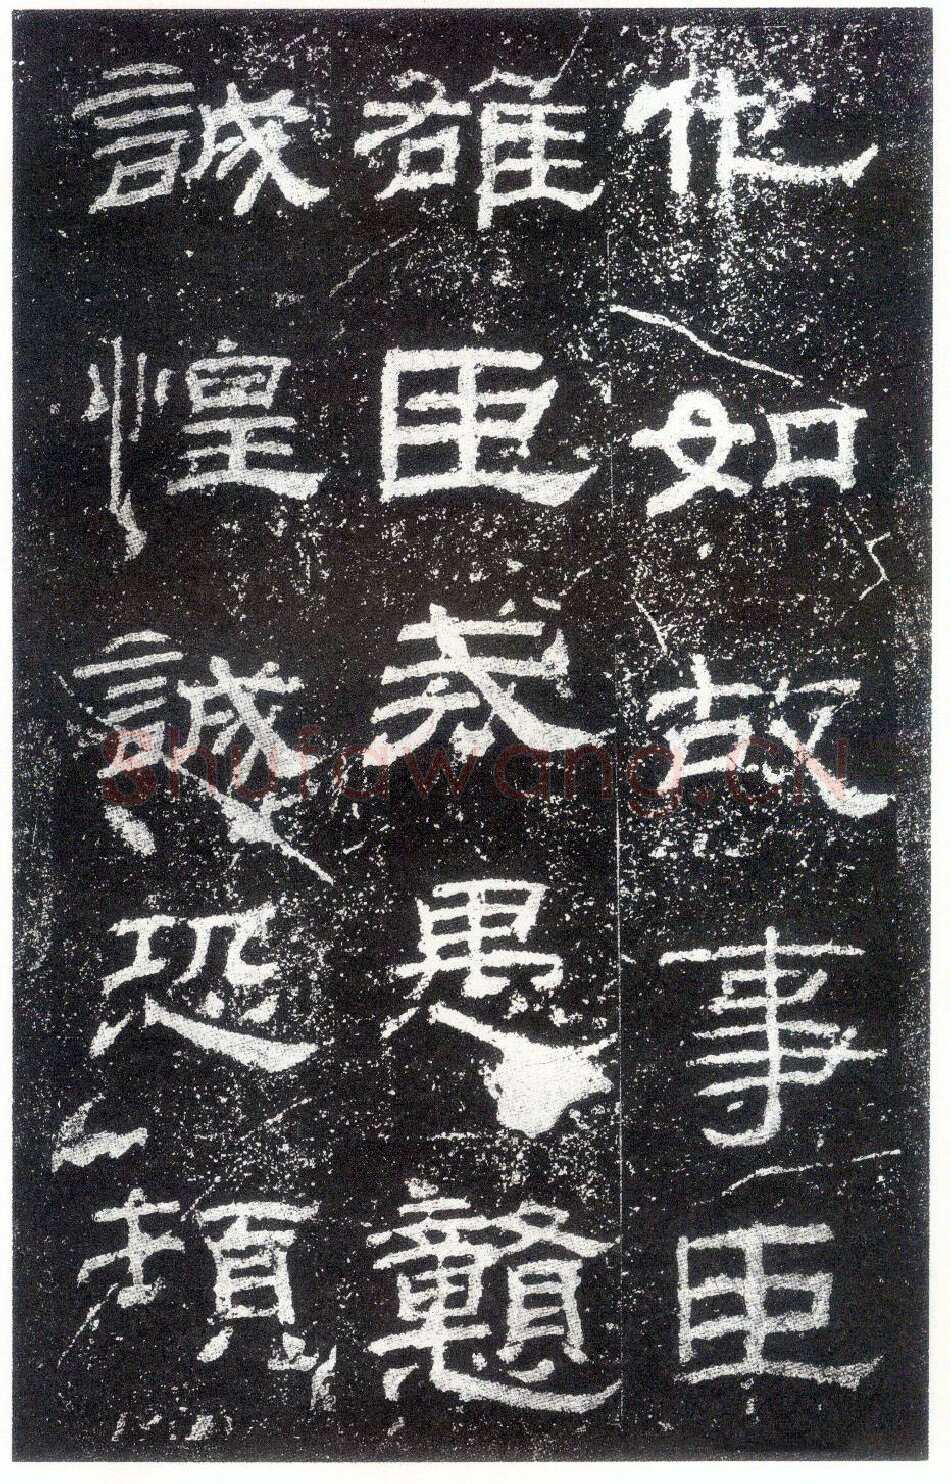 他如故事臣
雄臣戒愚戇
誠惶誠恐頓
Shufawang.CN